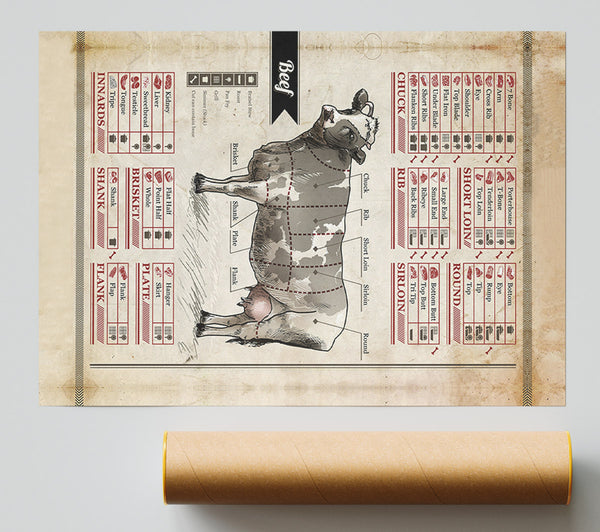 7 Bone
Arm
Cross Rib
Eye
Shoulder
Top Blade
Flat Iron
Under Blade
Short Ribs
Flanken Ribs
CHUCK
Porterhouse
T-Bone
Tenderloin
Top Loin
SHORT LOIN
Large End
Small End
Ribeye
Back Ribs
RIB
Bottom
Eye
Rump
Tip
Top
ROUND
Bottom Butt
Top Butt
Tri Tip
SIRLOIN
Beef
Chuck
Rib
Short Loin
Sirloin
Round
Brisket
Shank
Plate
Flank
Braised Stew
Roast
Pan Fry
Grill
Skewer (Steak)
Cut can contain bone
Kidney
Liver
Sweetbread
Testicle
Tongue
Tripe
INNARDS
Flat Half
Point Half
Whole
BRISKET
Shank
SHANK
Hanger
Skirt
PLATE
Flank
Flap
FLANK